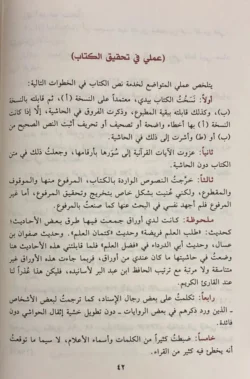 (عملي في تحقيق الكتاب)
يتلخص عملي المتواضع لخدمة نص الكتاب في الخطوات التالية:
أولاً: نَسَخْتُ الكتاب بيدي، معتمداً على النسخة (أ)، ثم قابلته بالنسخة
(ب)، وكذلك قابلته ببقية النسخ، وذكرت الفروق في الحاشية، إلّا إذا كانت
(أ) بها أخطاء واضحة أو تصحيف أو تحريف أثبت النص الصحيح من
(ب) أو (ظ) وأشرت إلى ذلك في الحاشية.
ثانياً: عزوت الآيات القرآنية إلى سُوَرها بأرقامها، وجعلتُ ذلك في متن
الكتاب دون الحاشية.
ثالثاً: خرَّجتُ النصوص الواردة بالكتاب، المرفوع منها والموقوف
والمقطوع، ولكني عُنيت بشكل خاص بتخريج وتحقيق المرفوع، أما غير
المرفوع فلم أجهد نفسي في البحث عنها كما صنعتُ بالمرفوع.
ملحوظة: كانت لدي أوراق جمعت فيها طرق بعض الأحاديث؛
كحديث: «طلب العلم فريضة» وحديث «كتمان العلم». وحديث صفوان بن
عسال، وحديث أبي الدرداء «في فضل العلم» فلما قابلتني هذه الأحاديث هنا
وضعتُ في حاشيتها ما كان عندي من أوراق، فربما جاءت هذه الأوراق غير
متناسقة ولا مرتبة مع ترتيب الحافظ ابن عبد البر لأسانيده، فليكن هذا عُذراً لنا
عند القارئ الكريم.
رابعاً: تكلمت على بعض رجال الإسناد، كما ترجمتُ لبعض الأشخاص
ـ الذين ورد ذكرهم في بعض الروايات ـ دون تطويل خشية إثقال الحواشي دون
فائدة.
خامساً: ضبطتُ كثيراً من الكلمات وأسماء الأعلام، لا سيما ما توقعتُ
أنه يخطئ فيه كثير من القراء.
٤٢